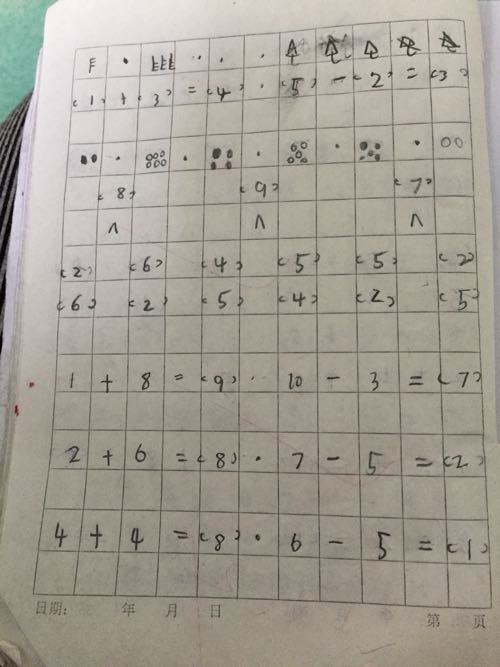 (1) + (3) = (4) · (5) - (2) = (3)
(8) (9) (7)
∧ ∧ ∧
(2) (6) (4) (5) (5) (2)
(6) (2) (5) (4) (2) (5)
1 + 8 = (9) · 10 - 3 = (7)
2 + 6 = (8) · 7 - 5 = (2)
4 + 4 = (8) · 6 - 5 = (1)
日期: 年 月 日 第 页